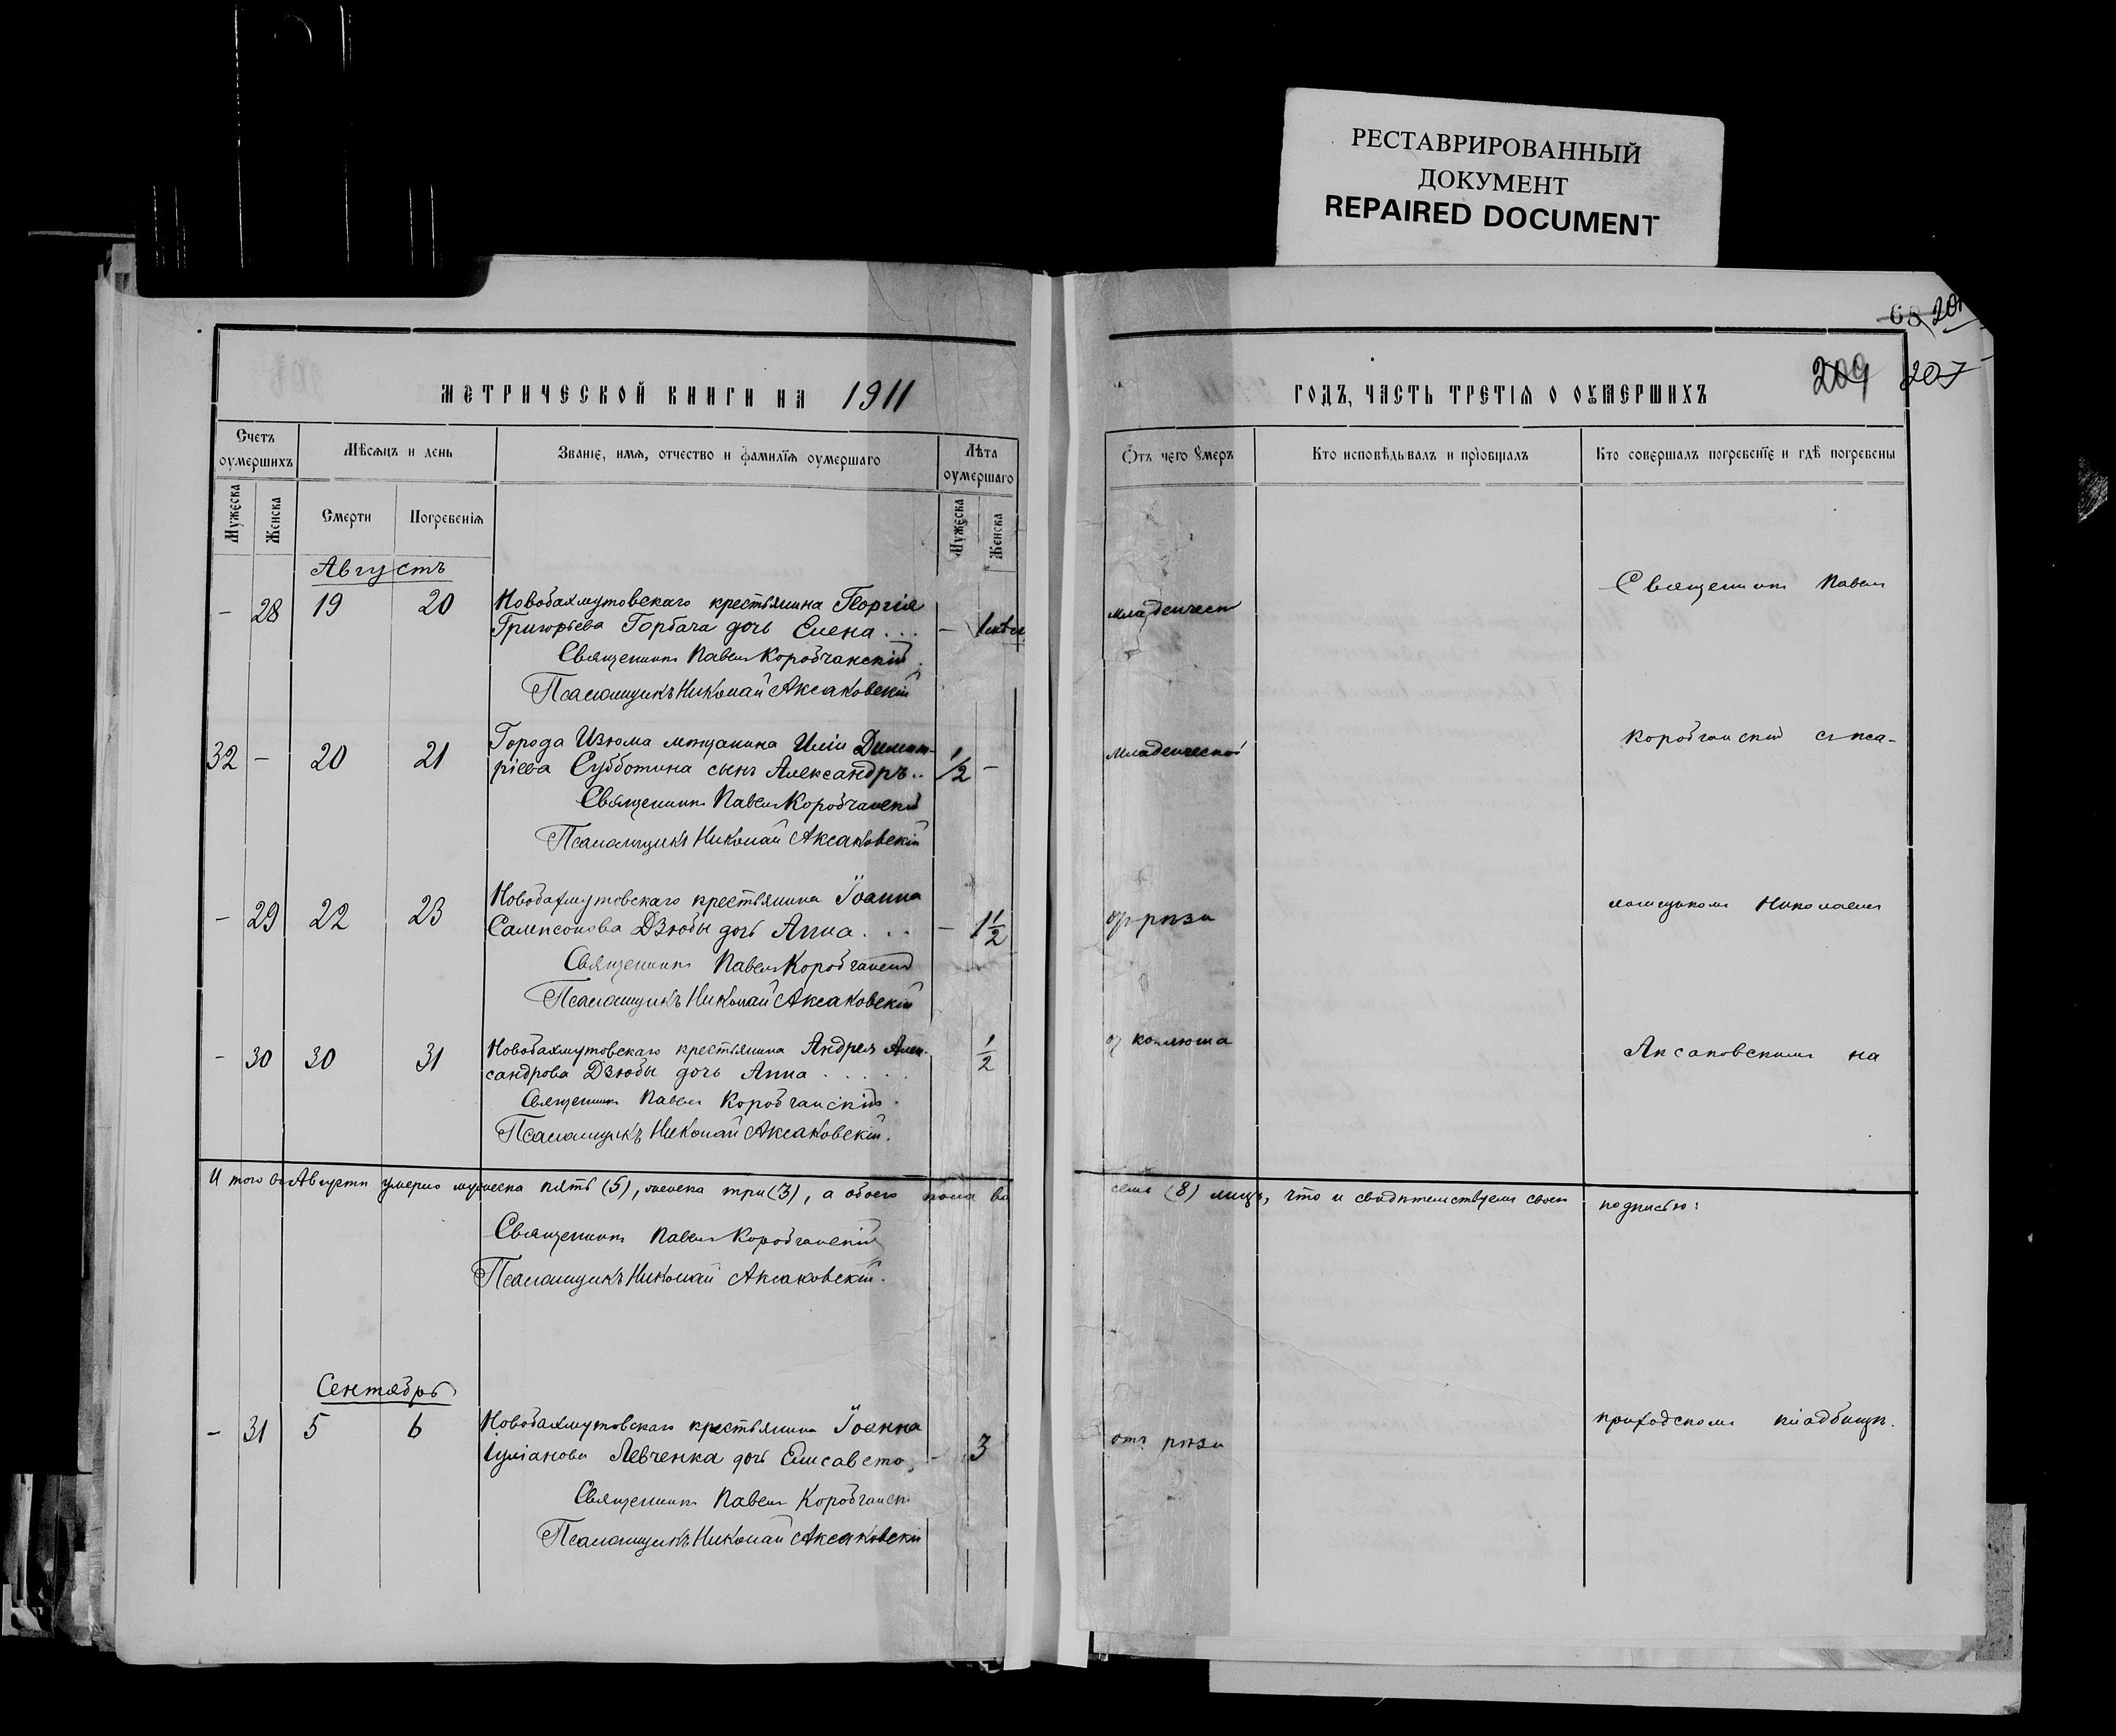 РЕСТАВРИРОВАННЫЙ
ДОКУМЕНТ
REPAIRED DOCUMENT
68 207
МЕТРИЧЕСКОЙ КНИГИ НА 1911
ГОДЪ, ЧАСТЬ ТРЕТІЯ О ОУМЕРШИХЪ
209 207
Счетъ оумершихъ
Мѣсяцъ и день
Званіе, имя, отчество и фамилія оумершаго
Лѣта оумершаго
Отъ чего умеръ
Кто исповѣдывалъ и пріобщалъ
Кто совершалъ погребеніе и гдѣ погребены
Мужеска
Женска
Смерти
Погребенія
Мужеска
Женска
Августъ
- 28 19 20 Новобахмутовскаго крестьянина Георгія
Григорьева Горбача дочь Елена . . . -
Священникъ Павелъ
Священникъ Павелъ Коробчанскій
Псаломщикъ Николай Аксаковскій
32 - 20 21 Города Изюма мѣщанина Иліи Димит-
ріева Субботина сынъ Александръ .. 1/2 -
Коробчанскій съ пса-
Священникъ Павелъ Коробчанскій
Псаломщикъ Николай Аксаковскій
- 29 22 23 Новобахмутовскаго крестьянина Іоанна
Сампсонова Дзюбы дочь Анна . . . - 1 1/2
ломщикомъ Николаемъ
Священникъ Павелъ Коробчанскій
Псаломщикъ Николай Аксаковскій
- 30 30 31 Новобахмутовскаго крестьянина Андрея Алек-
сандрова Дзюбы дочь Анна . . . . . 1/2
от коклюша
Аксаковскимъ на
Священникъ Павелъ Коробчанскій
Псаломщикъ Николай Аксаковскій.
Итого въ Августѣ умерло мужеска пять (5), женска три (3), а обоего пола во
семь (8) лицъ, что и свидѣтельствуемъ своею подписью:
Священникъ Павелъ Коробчанскій
Псаломщикъ Николай Аксаковскій.
Сентябрь
- 31 5 6 Новобахмутовскаго крестьянина Іоанна
Левченка дочь Елисавета - 3
отъ
приходскомъ кладбищѣ.
Священникъ Павелъ Коробчанск
Псаломщикъ Николай Аксаковскій